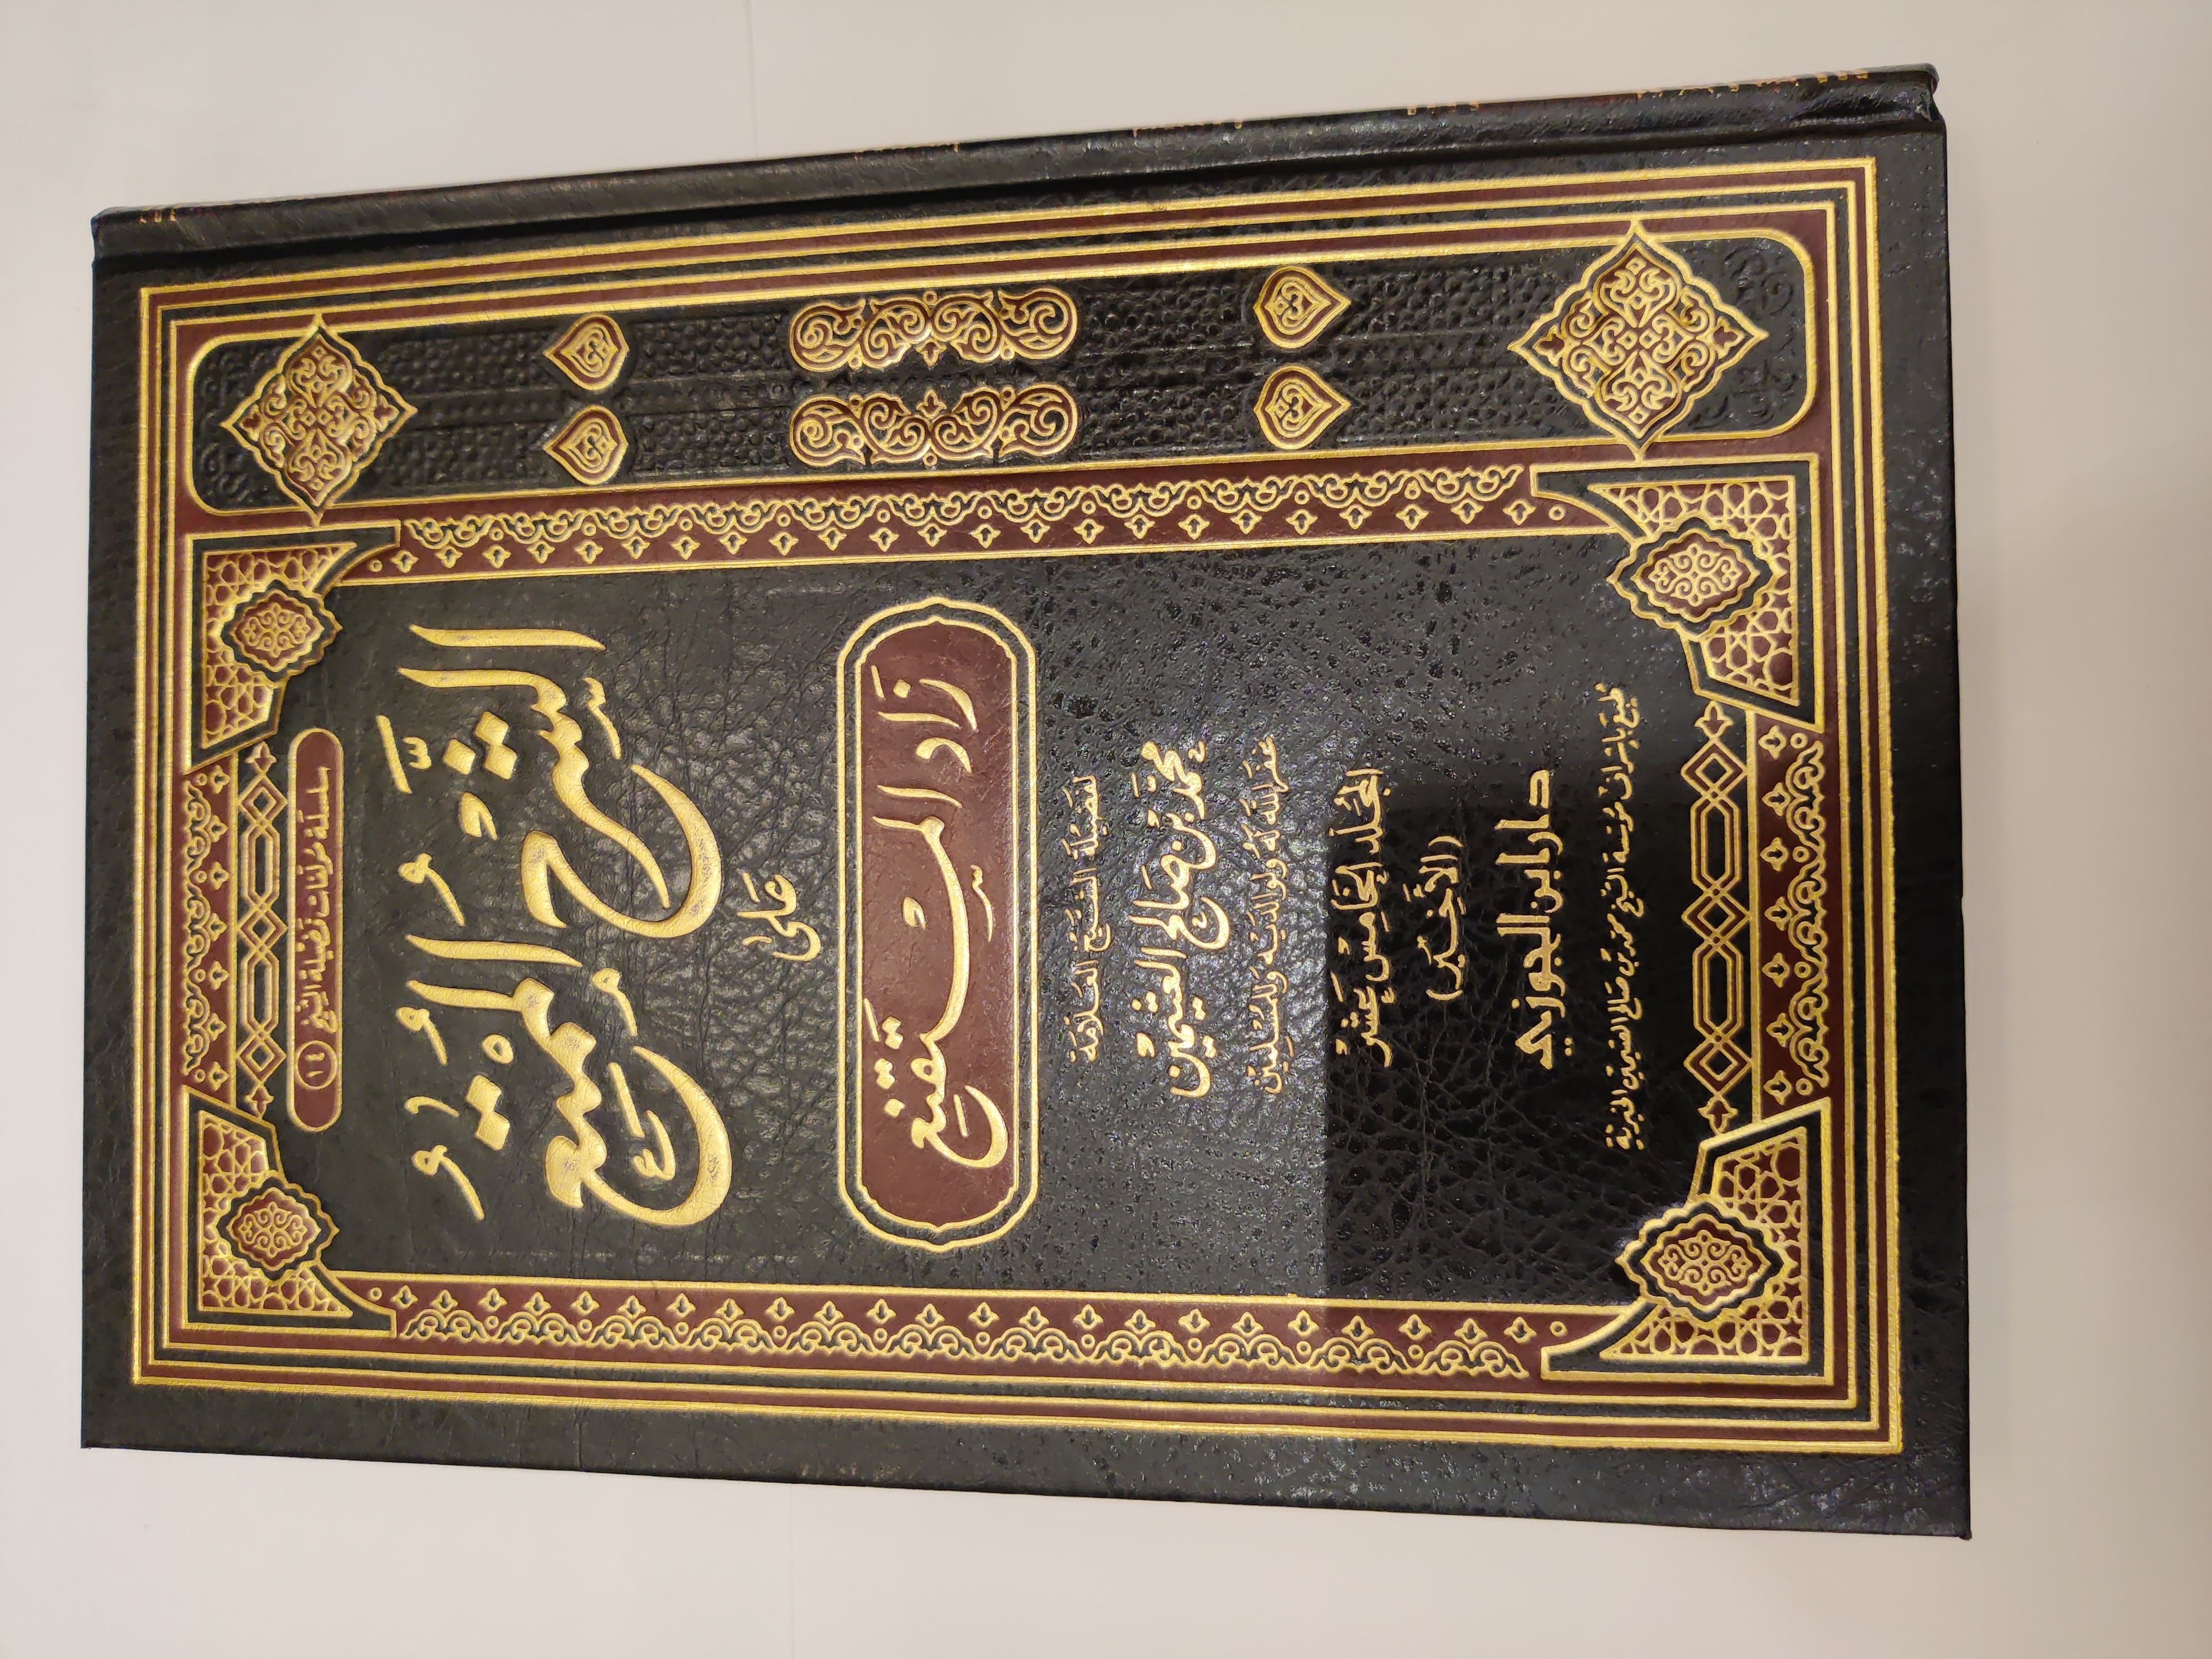 سلسلة مؤلفات فضيلة الشيخ ١٤
الشَّرْحُ المُمْتِعُ
عَلى
زَاد المُسْتَقْنِع
لفَضِيلَة الشَّيخ العَلَّامَة
محمَّد بْن صَالح العثيمين
غفر الله له ولوالديه وللمسلمين
المجَلّد الخَامِسْ عَشَر
(الأخير)
دار ابن الجوزي
طبع بإشراف مؤسسة الشيخ محمد بن صالح العثيمين الخيرية